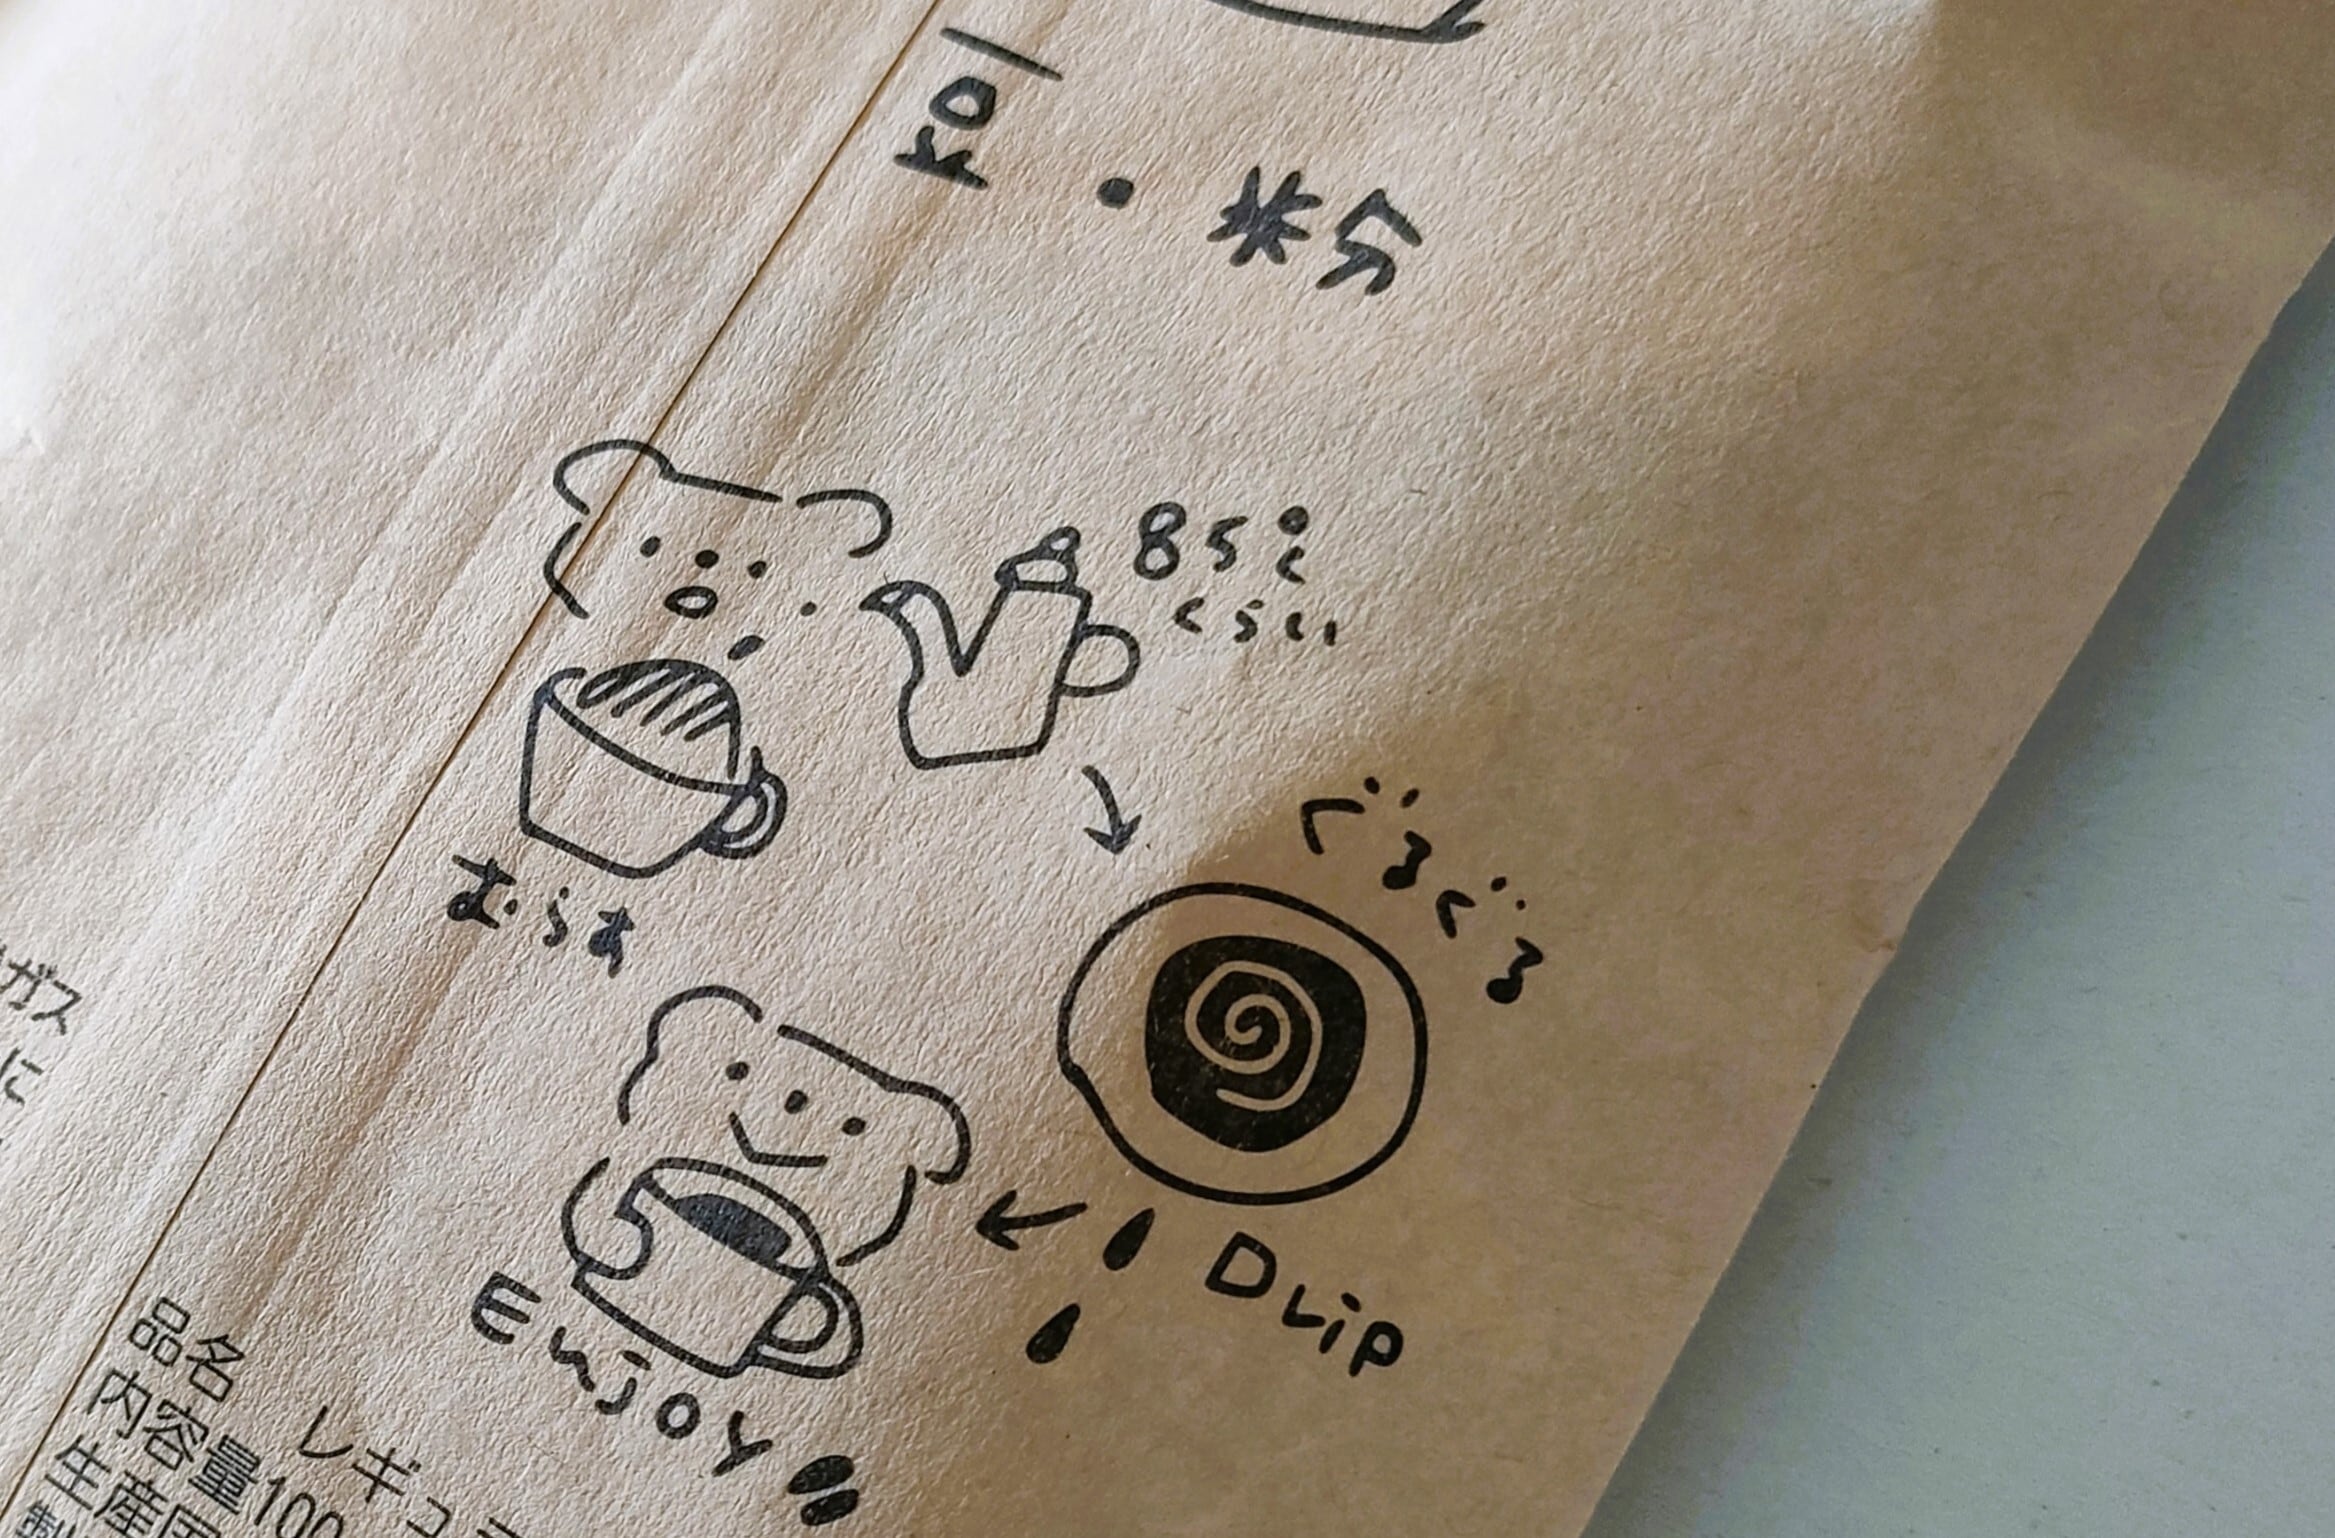 豆・粉
85℃
くらい
むらす
ぐるぐる
Drip
Enjoy
ガス
に
品名 レギュラ
内容量100
生産国